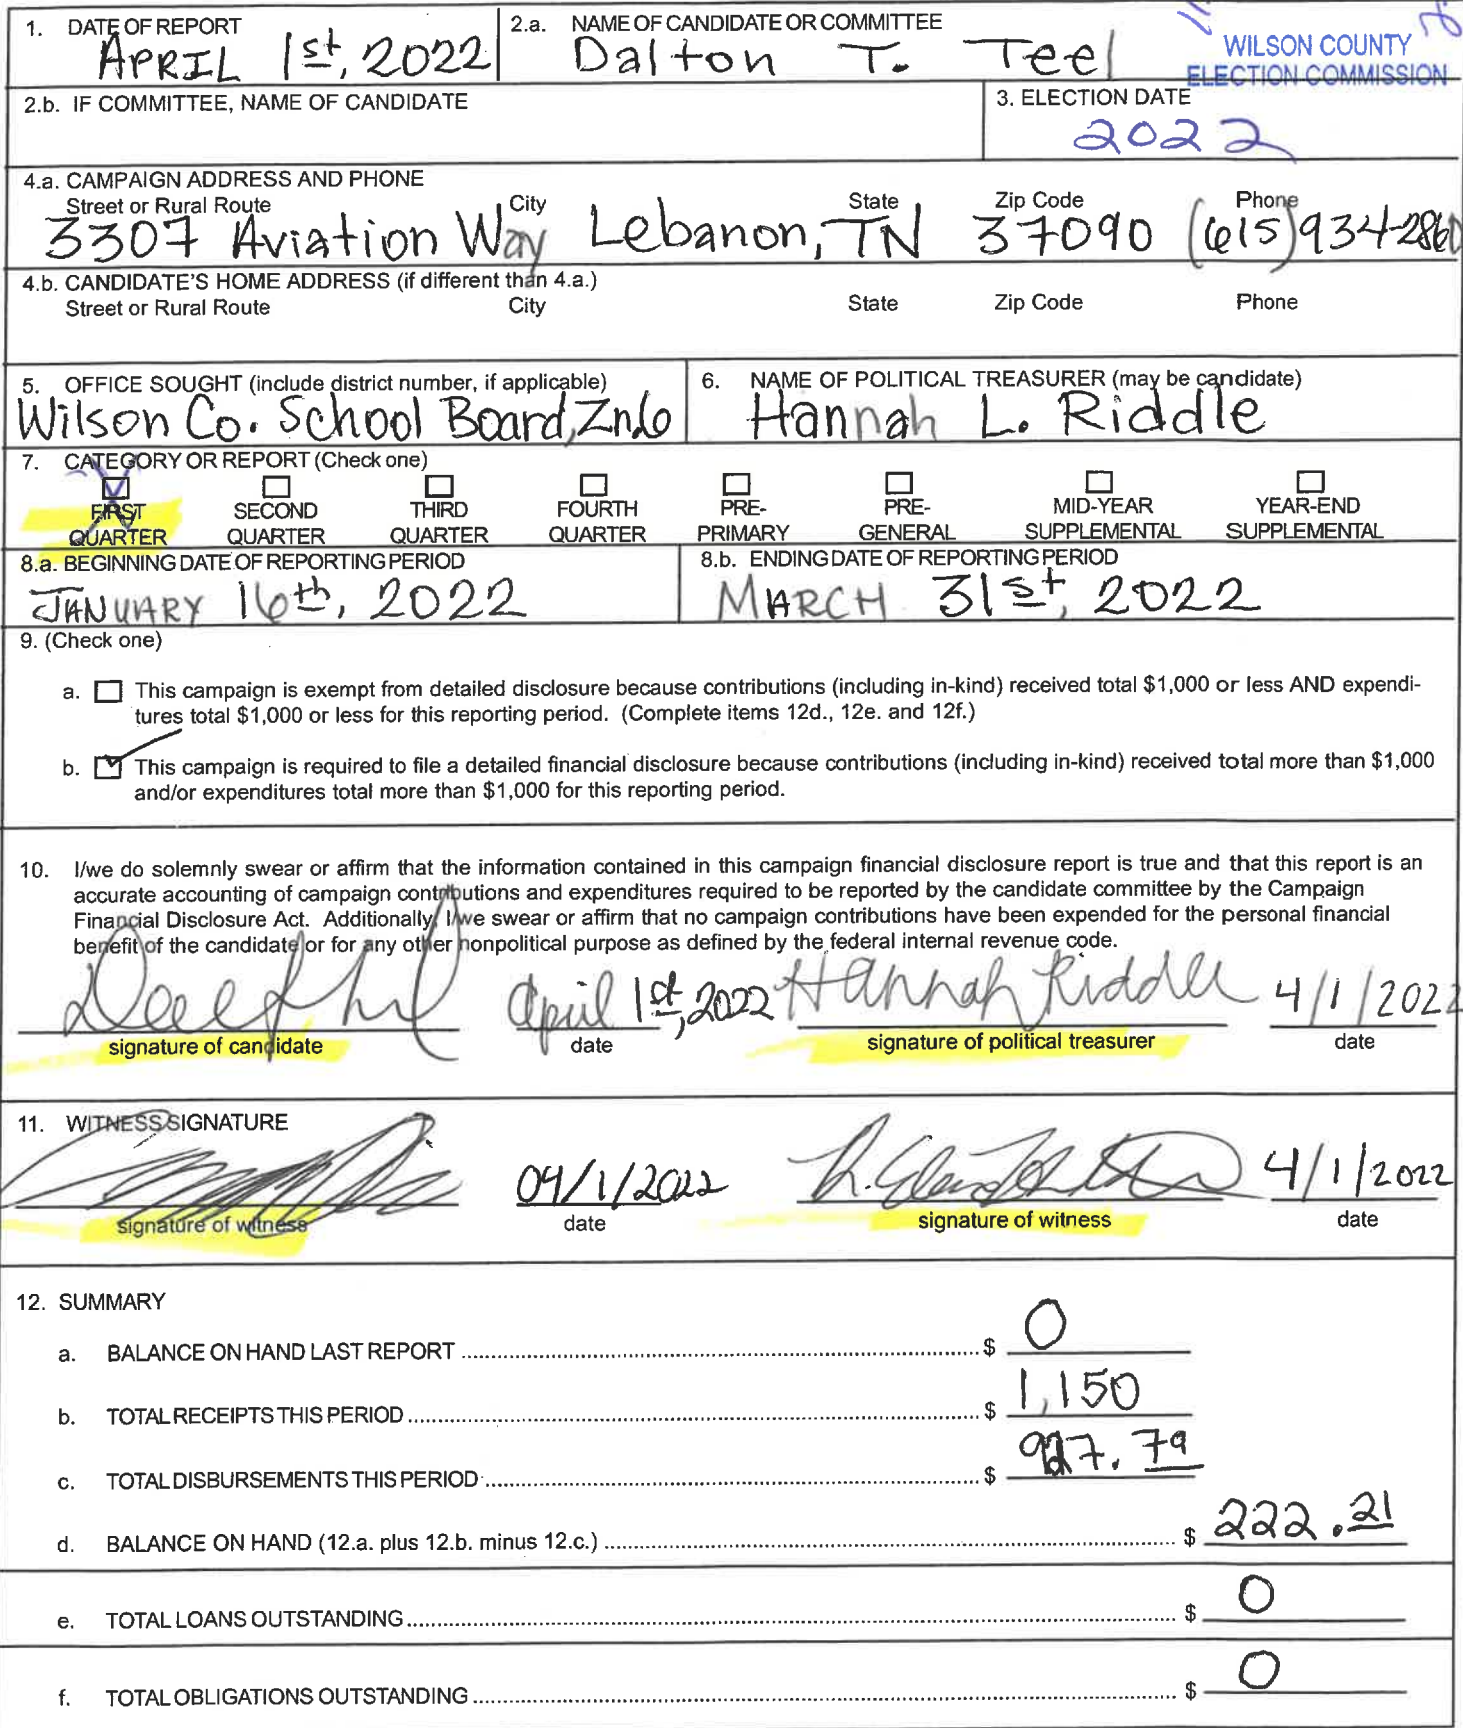 1. DATE OF REPORT
APRIL 1st, 2022
2.a. NAME OF CANDIDATE OR COMMITTEE
Dalton T. Teel
WILSON COUNTY
ELECTION COMMISSION
2.b. IF COMMITTEE, NAME OF CANDIDATE
3. ELECTION DATE
2022
4.a. CAMPAIGN ADDRESS AND PHONE
Street or Rural Route City State Zip Code Phone
3307 Aviation Way Lebanon, TN 37090 (615)934-2860
4.b. CANDIDATE'S HOME ADDRESS (if different than 4.a.)
Street or Rural Route City State Zip Code Phone
5. OFFICE SOUGHT (include district number, if applicable)
Wilson Co. School Board, Zn.6
6. NAME OF POLITICAL TREASURER (may be candidate)
Hannah L. Riddle
7. CATEGORY OR REPORT (Check one)
FIRST SECOND THIRD FOURTH PRE- PRE- MID-YEAR YEAR-END
QUARTER QUARTER QUARTER QUARTER PRIMARY GENERAL SUPPLEMENTAL SUPPLEMENTAL
8.a. BEGINNING DATE OF REPORTING PERIOD
JANUARY 16th, 2022
8.b. ENDING DATE OF REPORTING PERIOD
MARCH 31st, 2022
9. (Check one)
a. This campaign is exempt from detailed disclosure because contributions (including in-kind) received total $1,000 or less AND expendi-
tures total $1,000 or less for this reporting period. (Complete items 12d., 12e. and 12f.)
b. This campaign is required to file a detailed financial disclosure because contributions (including in-kind) received total more than $1,000
and/or expenditures total more than $1,000 for this reporting period.
10. I/we do solemnly swear or affirm that the information contained in this campaign financial disclosure report is true and that this report is an
accurate accounting of campaign contributions and expenditures required to be reported by the candidate committee by the Campaign
Financial Disclosure Act. Additionally, I/we swear or affirm that no campaign contributions have been expended for the personal financial
benefit of the candidate or for any other nonpolitical purpose as defined by the federal internal revenue code.
April 1st, 2022 Hannah Riddle 4/1/2022
signature of candidate date signature of political treasurer date
11. WITNESS SIGNATURE
04/1/2022 4/1/2022
signature of witness date signature of witness date
12. SUMMARY
a. BALANCE ON HAND LAST REPORT $ 0
b. TOTAL RECEIPTS THIS PERIOD $ 1,150
c. TOTAL DISBURSEMENTS THIS PERIOD $ 927.79
d. BALANCE ON HAND (12.a. plus 12.b. minus 12.c.) $ 222.21
e. TOTAL LOANS OUTSTANDING $ 0
f. TOTAL OBLIGATIONS OUTSTANDING $ 0